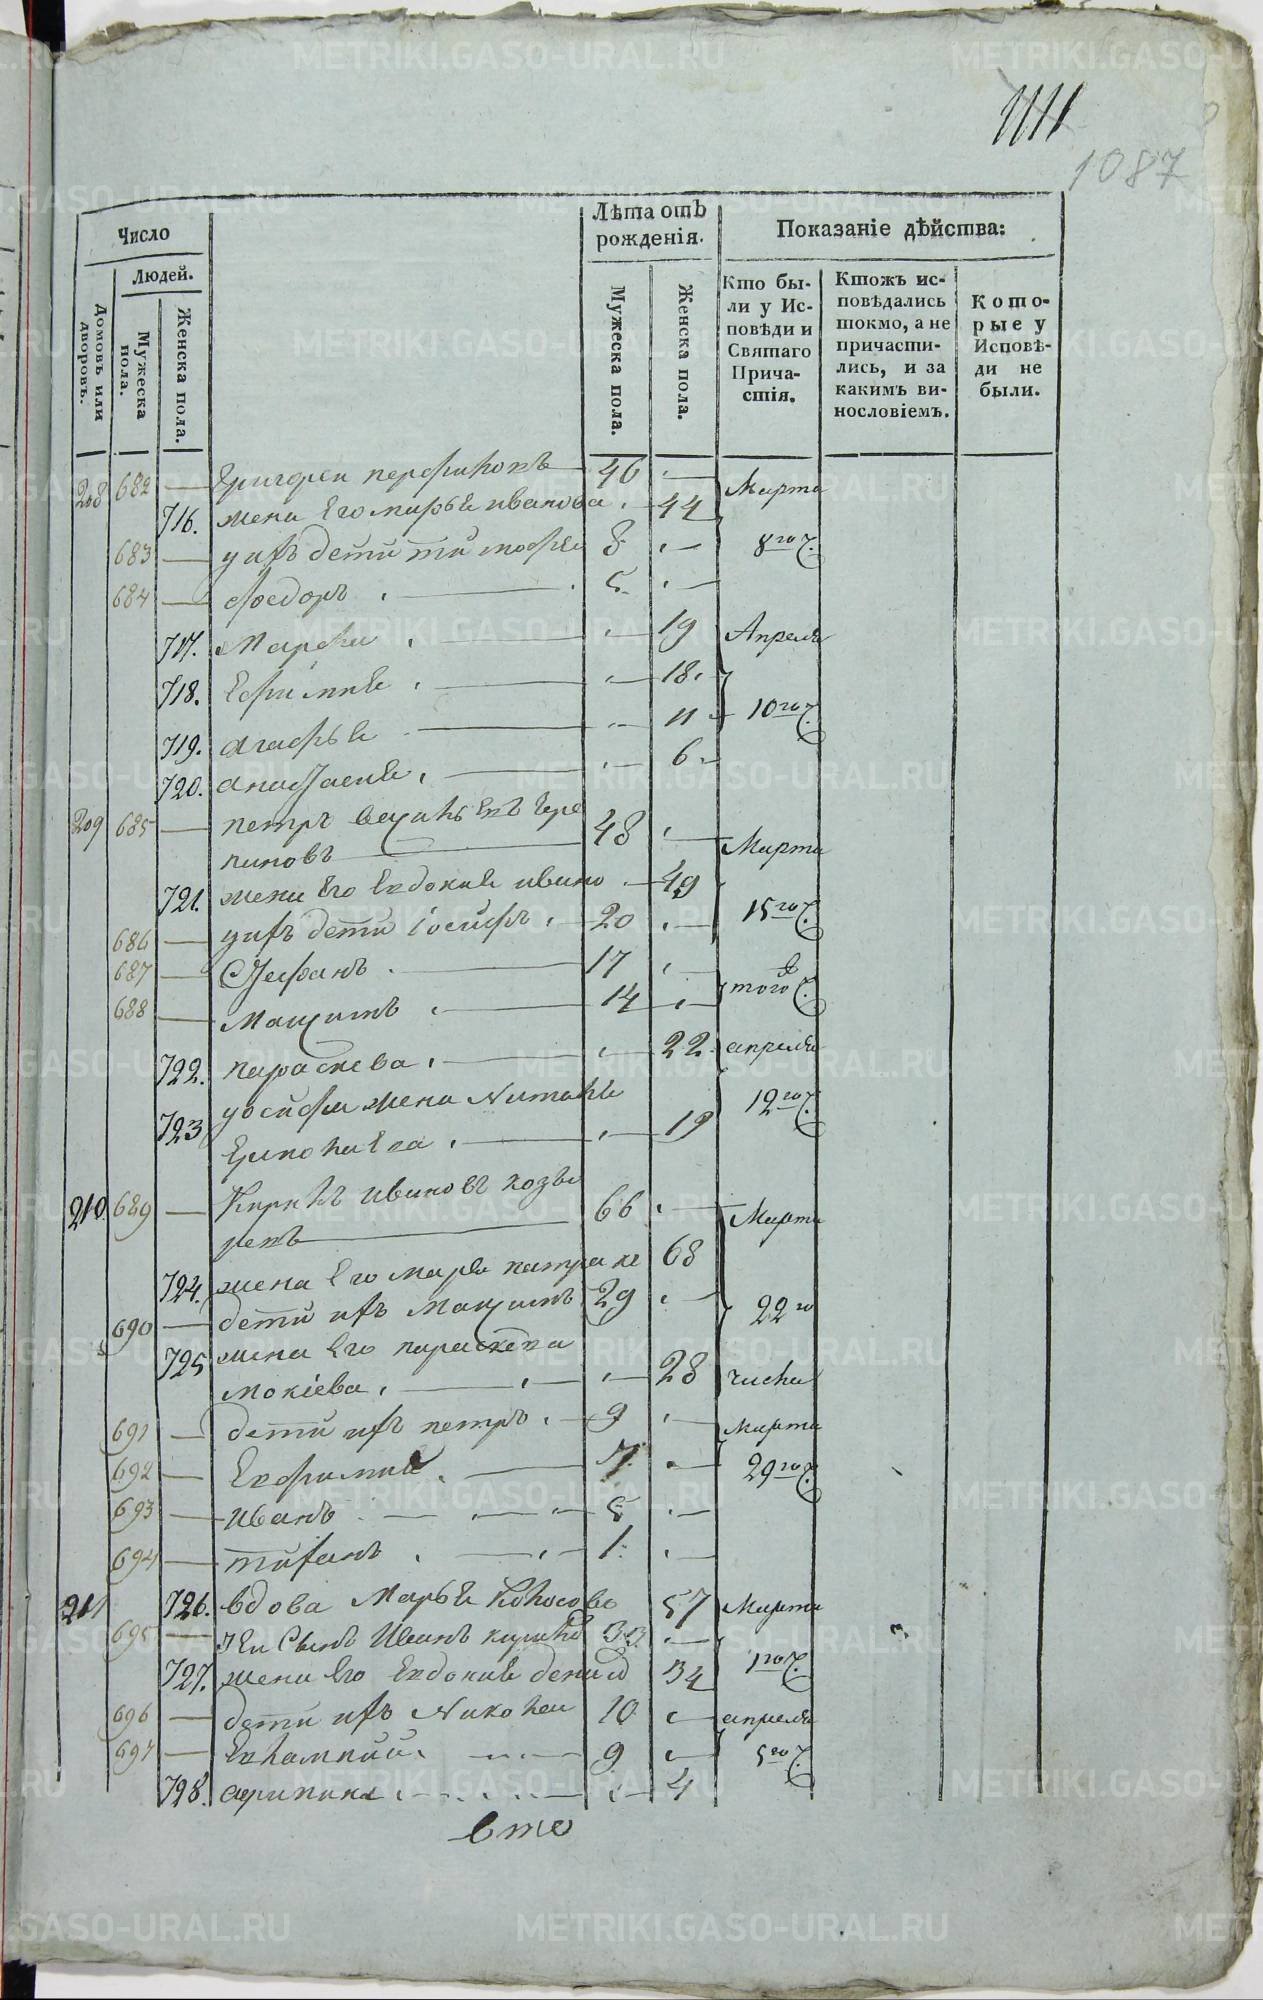 1111
1087
Число
Людей.
Домовъ или дворовъ.
Мужеска пола.
Женска пола.
Лѣта отъ рожденія.
Мужеска пола.
Женска пола.
Показаніе дѣйства:
Кто бы-
ли у Ис-
повѣди и
Святаго
Прича-
стія.
Ктожъ ис-
повѣдались
токмо, а не
причасти-
лись, и за
какимъ ви-
нословіемъ.
Кото-
рые у
Исповѣ-
ди не
были.
208 682 — Григорей 46 — Марта
716. жена Его марья иванова 44
683 — ихъ дети тимофеи 8 — 8го ч.
684 — федоръ 5 —
717. Марфа — 19 Апреля
718. Ефимия — 18
719. агафья — 11 10го ч.
720. анастасия — 6
209 685 — петръ 48 — Марта
721. жена Его Евдокия ивано 49
686 — ихъ дети Іосифъ 20 — 15го ч.
687 — Стефанъ 17 —
688 — Максимъ 14 — того ч.
722. параскева — 22 апреля
723 иосифа жена — 19 12го ч.
210. 689 — ивановъ козы
ревъ 66 — Марта
724. жена Его марья 68
690 — дети ихъ Максимъ 29 — 22го
725 жена Его параскева
мокіева — 28 числа
691 — дети ихъ петръ 9 — Марта
692 — Евфимий 7 — 29го ч.
693 — иванъ 5 —
694 — 1 —
211 726. вдова Марья 57 Марта
695 — Ея Сынъ Иванъ 33 —
727. жена Его Евдокия 34 1го ч.
696 — дети ихъ Николаи 10 — апреля
697 — Евлампий 9 — 5го ч.
728. агрипина — 4
вто
METRIKI.GASO-URAL.RU